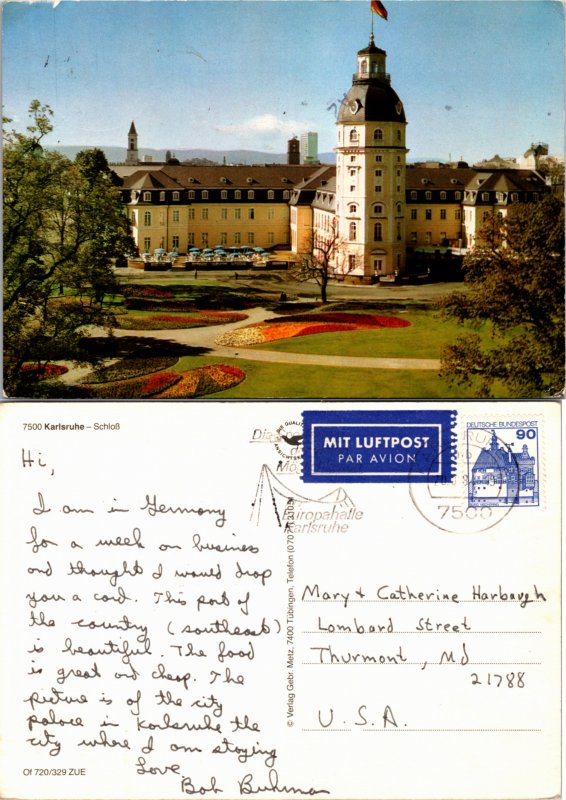 7500 Karlsruhe – Schloß
Hi,
I am in Germany
for a week on business
and thought I would drop
you a card. This part of
the country (southeast)
is beautiful. The food
is great and cheap. The
picture is of the city
palace in Karlsruhe the
city where I am staying
Love
Bob
Of 720/329 ZUE
© Verlag Gebr. Metz, 7400 Tübingen, Telefon
MIT LUFTPOST
PAR AVION
Europahalle
Karlsruhe
DEUTSCHE BUNDESPOST
90
7500
Mary + Catherine Harbaugh
Lombard Street
Thurmont, Md
21788
U.S.A.